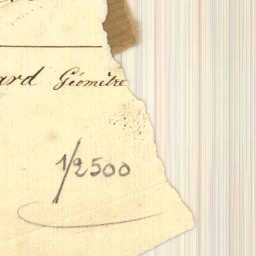 ard Géomètre
1/2500